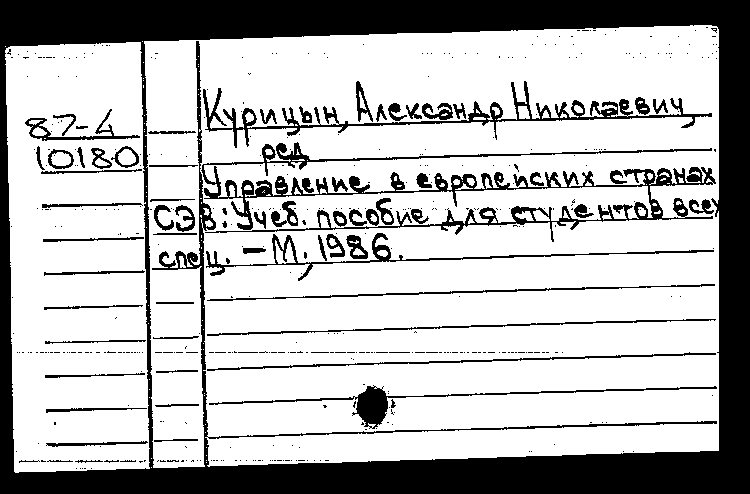 87-4
10180
Курицын, Александр Николаевич,
ред.
Управление в европейских странах
СЭВ: Учеб. пособие для студентов всех
спец. - М., 1986.